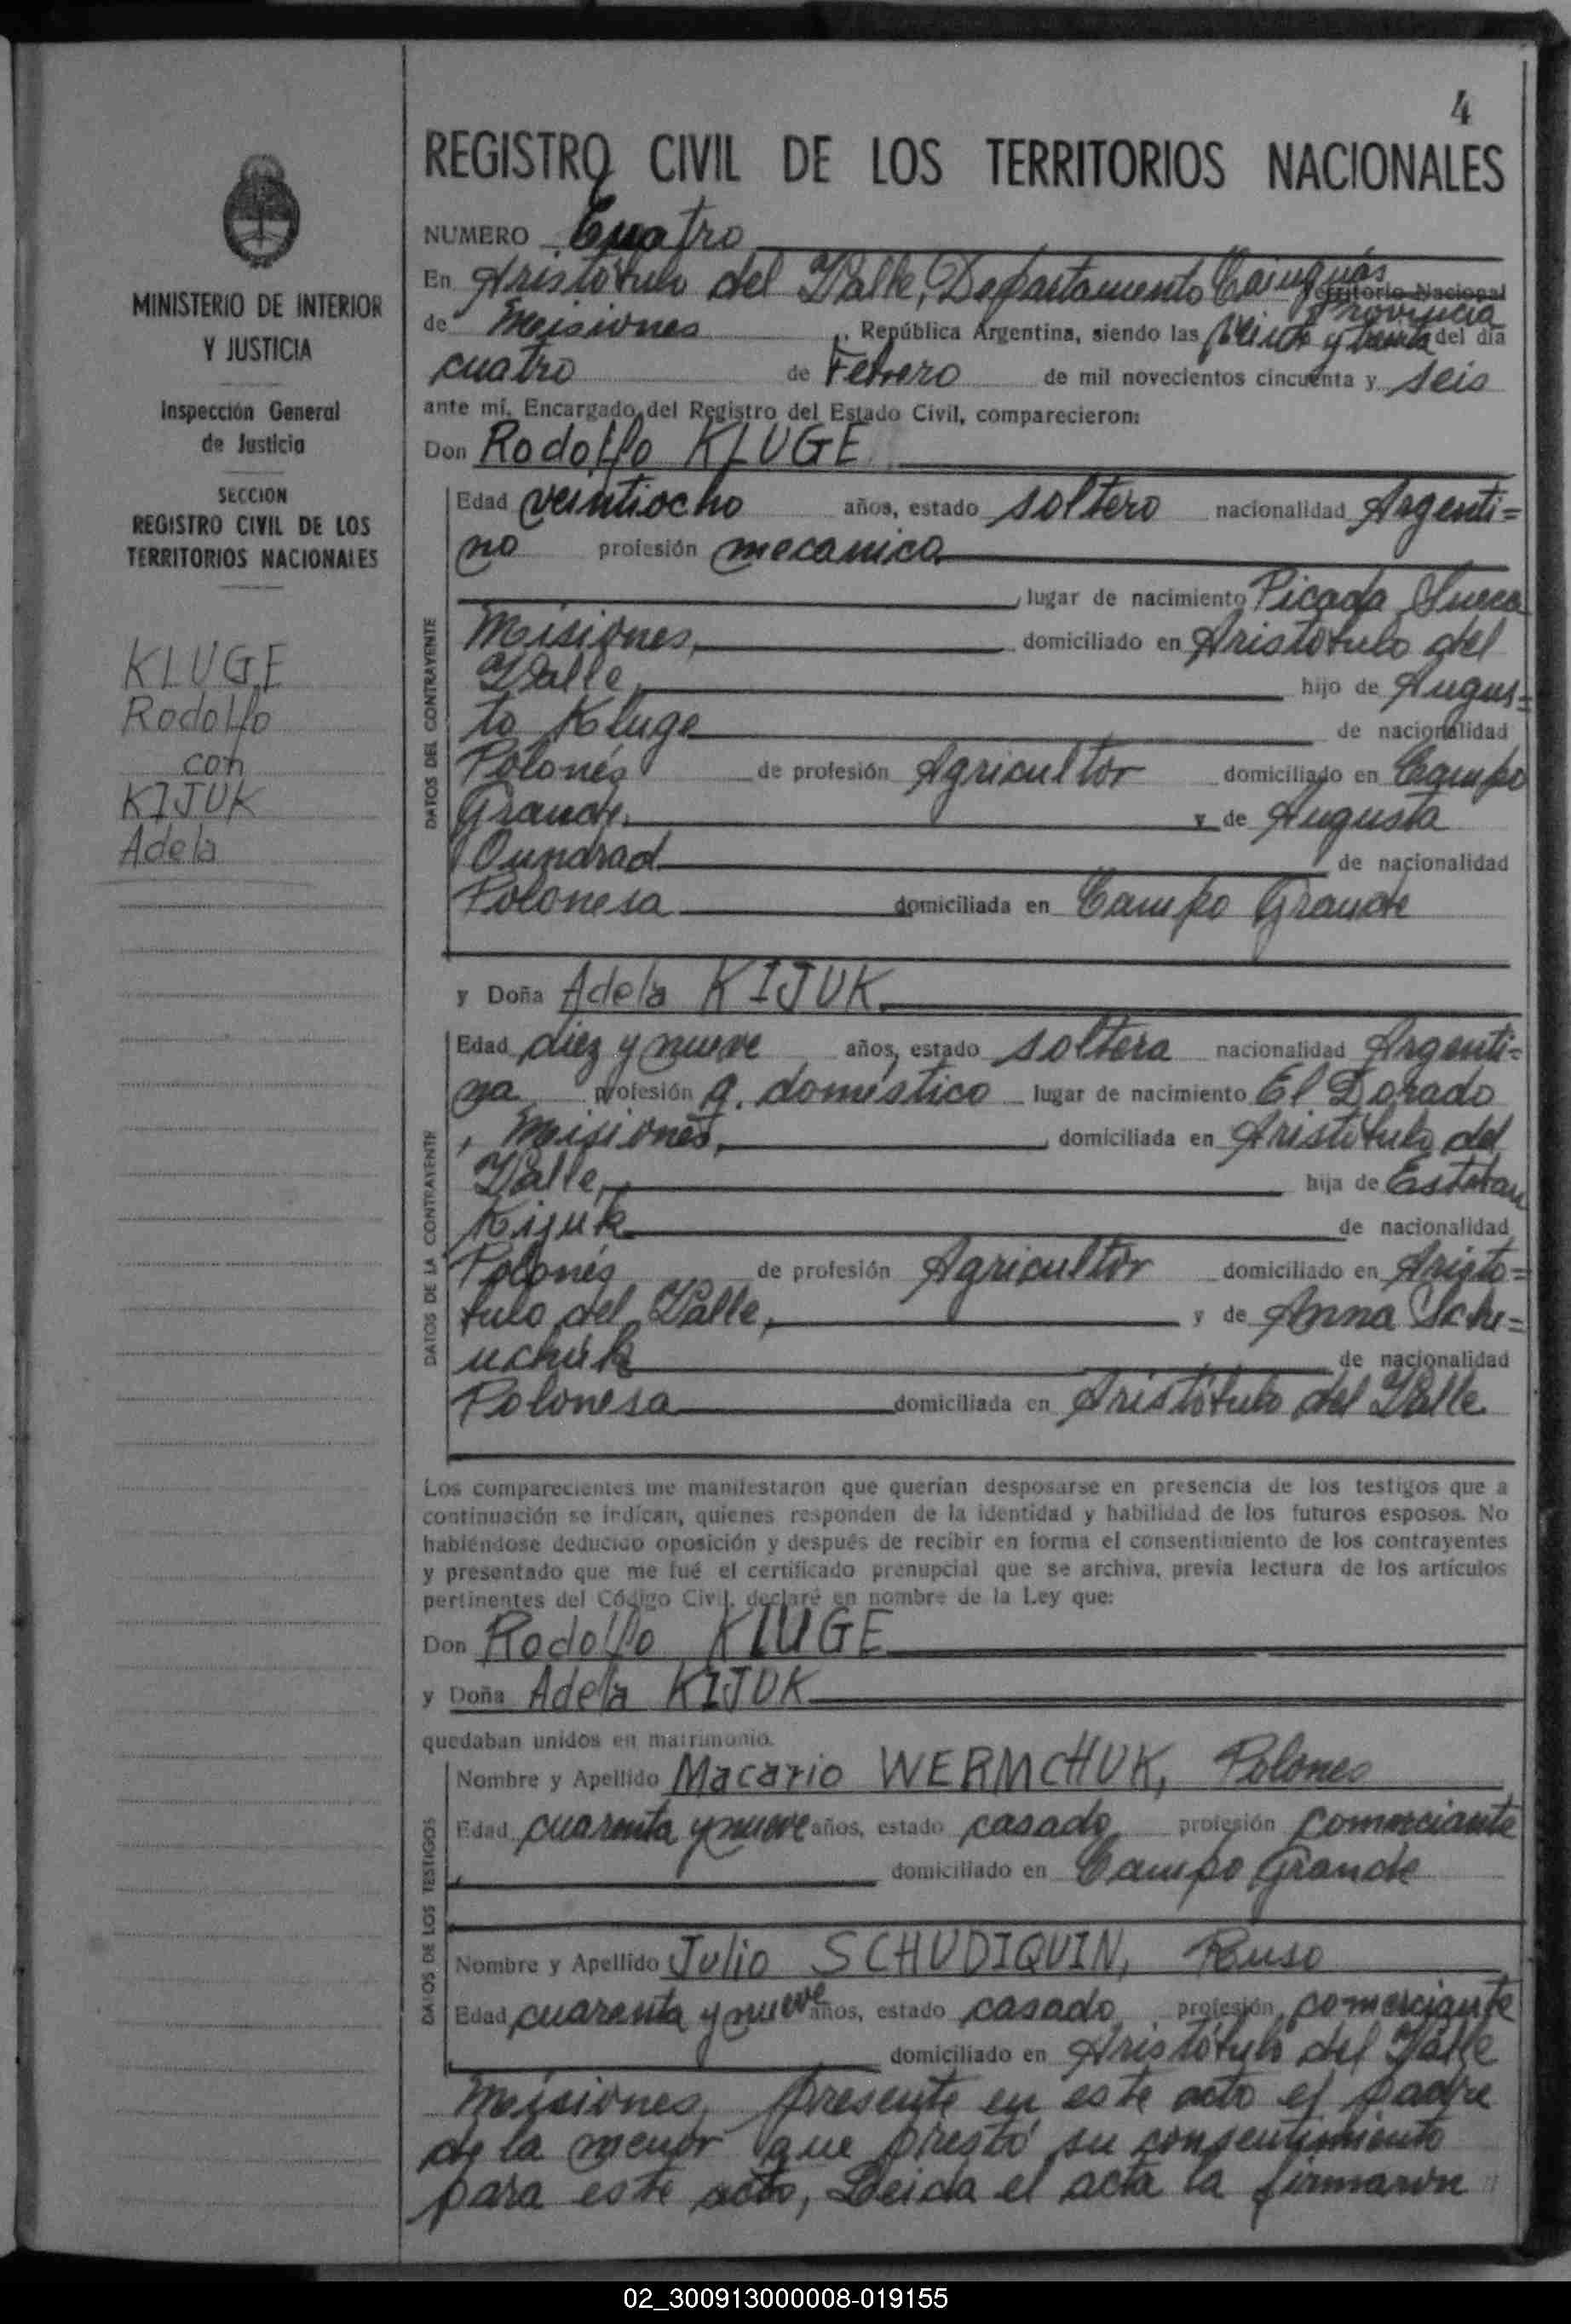 4
REGISTRO CIVIL DE LOS TERRITORIOS NACIONALES
MINISTERIO DE INTERIOR
Y JUSTICIA
Inspección General
de Justicia
SECCION
REGISTRO CIVIL DE LOS
TERRITORIOS NACIONALES
KLUGE
Rodolfo
con
KIJUK
Adela
NUMERO Cuatro
En Aristóbulo del Valle, Departamento Cainguás Territorio Nacional
Provincia
de Misiones, República Argentina, siendo las y del día
cuatro de Febrero de mil novecientos cincuenta y seis
ante mí, Encargado del Registro del Estado Civil, comparecieron:
Don Rodolfo KLUGE
DATOS DEL CONTRAYENTE
Edad veintiocho años, estado soltero nacionalidad Argenti=
no profesión mecanico
lugar de nacimiento Picada Sueca
Misiones, domiciliado en Aristobulo del
Valle, hijo de Augus=
to Kluge de nacionalidad
Polonés de profesión Agricultor domiciliado en Campo
Grande, y de Augusta
Oundrad de nacionalidad
Polonesa domiciliada en Campo Grande
y Doña Adela KIJUK
DATOS DE LA CONTRAYENTE
Edad diez y nueve años, estado soltera nacionalidad Argenti=
na profesión q. doméstico lugar de nacimiento El Dorado
, Misiones, domiciliada en Aristóbulo del
Valle, hija de Esteban
Kijuk de nacionalidad
Polonés de profesión Agricultor domiciliado en Aristo=
bulo del Valle, y de Anna Sche=
uchuk de nacionalidad
Polonesa domiciliada en Aristóbulo del Valle
Los comparecientes me manifestaron que querían desposarse en presencia de los testigos que a
continuación se indican, quienes responden de la identidad y habilidad de los futuros esposos. No
habiéndose deducido oposición y después de recibir en forma el consentimiento de los contrayentes
y presentado que me fué el certificado prenupcial que se archiva, previa lectura de los artículos
pertinentes del Código Civil, declaré en nombre de la Ley que:
Don Rodolfo KLUGE
y Doña Adela KIJUK
quedaban unidos en matrimonio.
DATOS DE LOS TESTIGOS
Nombre y Apellido Macario WERMCHUK, Polones
Edad cuarenta y nueve años, estado casado profesión comerciante
, domiciliado en Campo Grande
Nombre y Apellido Julio SCHUDIQUIN, Ruso
Edad cuarenta y nueve años, estado casado profesión comerciante
domiciliado en Aristóbulo del Valle
Misiones, presente en este acto el padre
de la menor que prestó su consentimiento
para este acto, Leida el acta la firmaron
02_300913000008-019155